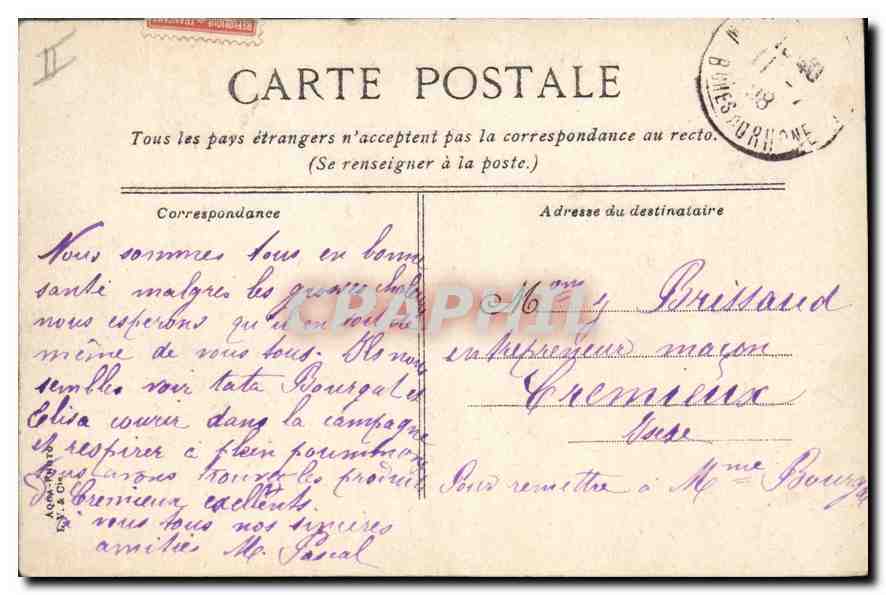 II
REPUBLIQUE FRANCAISE
CARTE POSTALE
Tous les pays étrangers n'acceptent pas la correspondance au recto.
(Se renseigner à la poste.)
BOUCHES DU RHONE
Correspondance
Nous sommes tous en bonne
santé malgrés les grosses chaleurs
nous esperons qu'il en soit de
même de vous tous. Ils nous
sembles voir tata Bourgat et
Elisa courir dans la campagne
et respirer à plein poummons
Nous avons trouvé les produits
de Cremieux exellents.
à vous tous nos sinceres
amitiés M. Pascal
AQUA-PHOTO
L. V. & Cie
Adresse du destinataire
Mon Brissaud
entrepreneur maçon
Cremieux
Isère
Pour remettre à Mme Bourgat
CPAPHIL